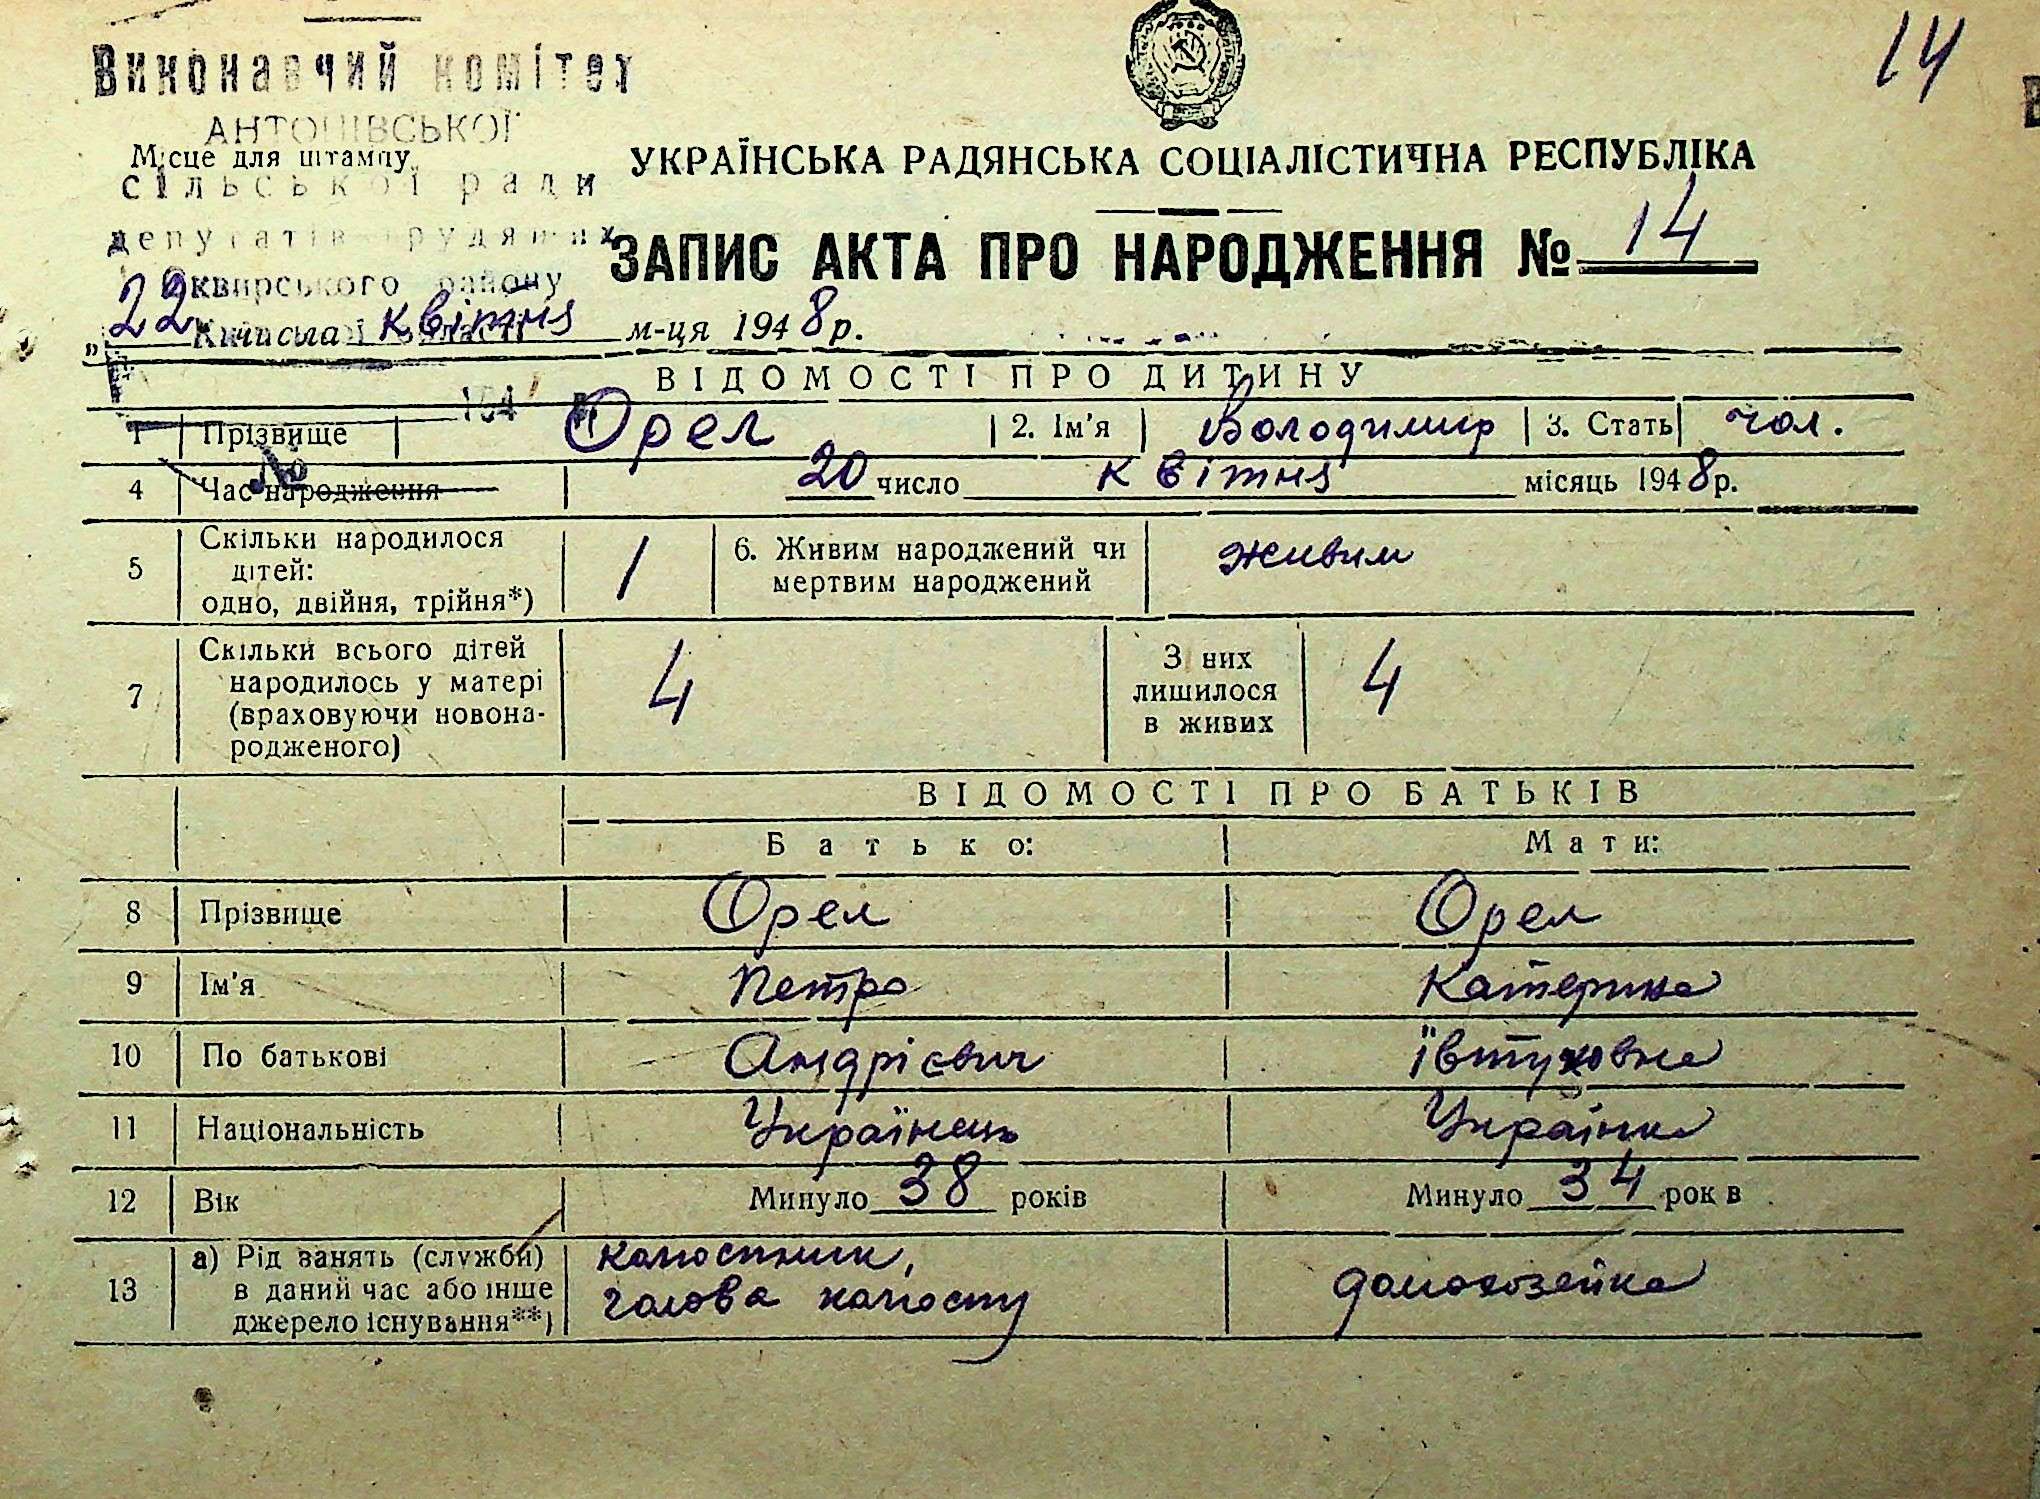 14
Виконавчий комітет
АНТОШІВСЬКОЇ
Місце для штампу
сільської ради
депутатів трудящих
Сквирського району
УКРАЇНСЬКА РАДЯНСЬКА СОЦІАЛІСТИЧНА РЕСПУБЛІКА
ЗАПИС АКТА ПРО НАРОДЖЕННЯ № 14
„22 числа квітня м-ця 1948р.
ВІДОМОСТІ ПРО ДИТИНУ
1 Прізвище Орел 2. Ім'я Володимир 3. Стать чол.
№
4 Час народження 20 число квітня місяць 1948р.
5 Скільки народилося дітей: одно, двійня, трійня*) 1 6. Живим народжений чи мертвим народжений живим
7 Скільки всього дітей народилось у матері (враховуючи новонародженого) 4 З них лишилося в живих 4
ВІДОМОСТІ ПРО БАТЬКІВ
Батько: Мати:
8 Прізвище Орел Орел
9 Ім'я Петро Катерина
10 По батькові Андрієвич Ївтуховна
11 Національність Українець Українка
12 Вік Минуло 38 років Минуло 34 рок в
13 а) Рід занять (служби) в даний час або інше джерело існування**) колгоспник, голова колгоспу домохозейка